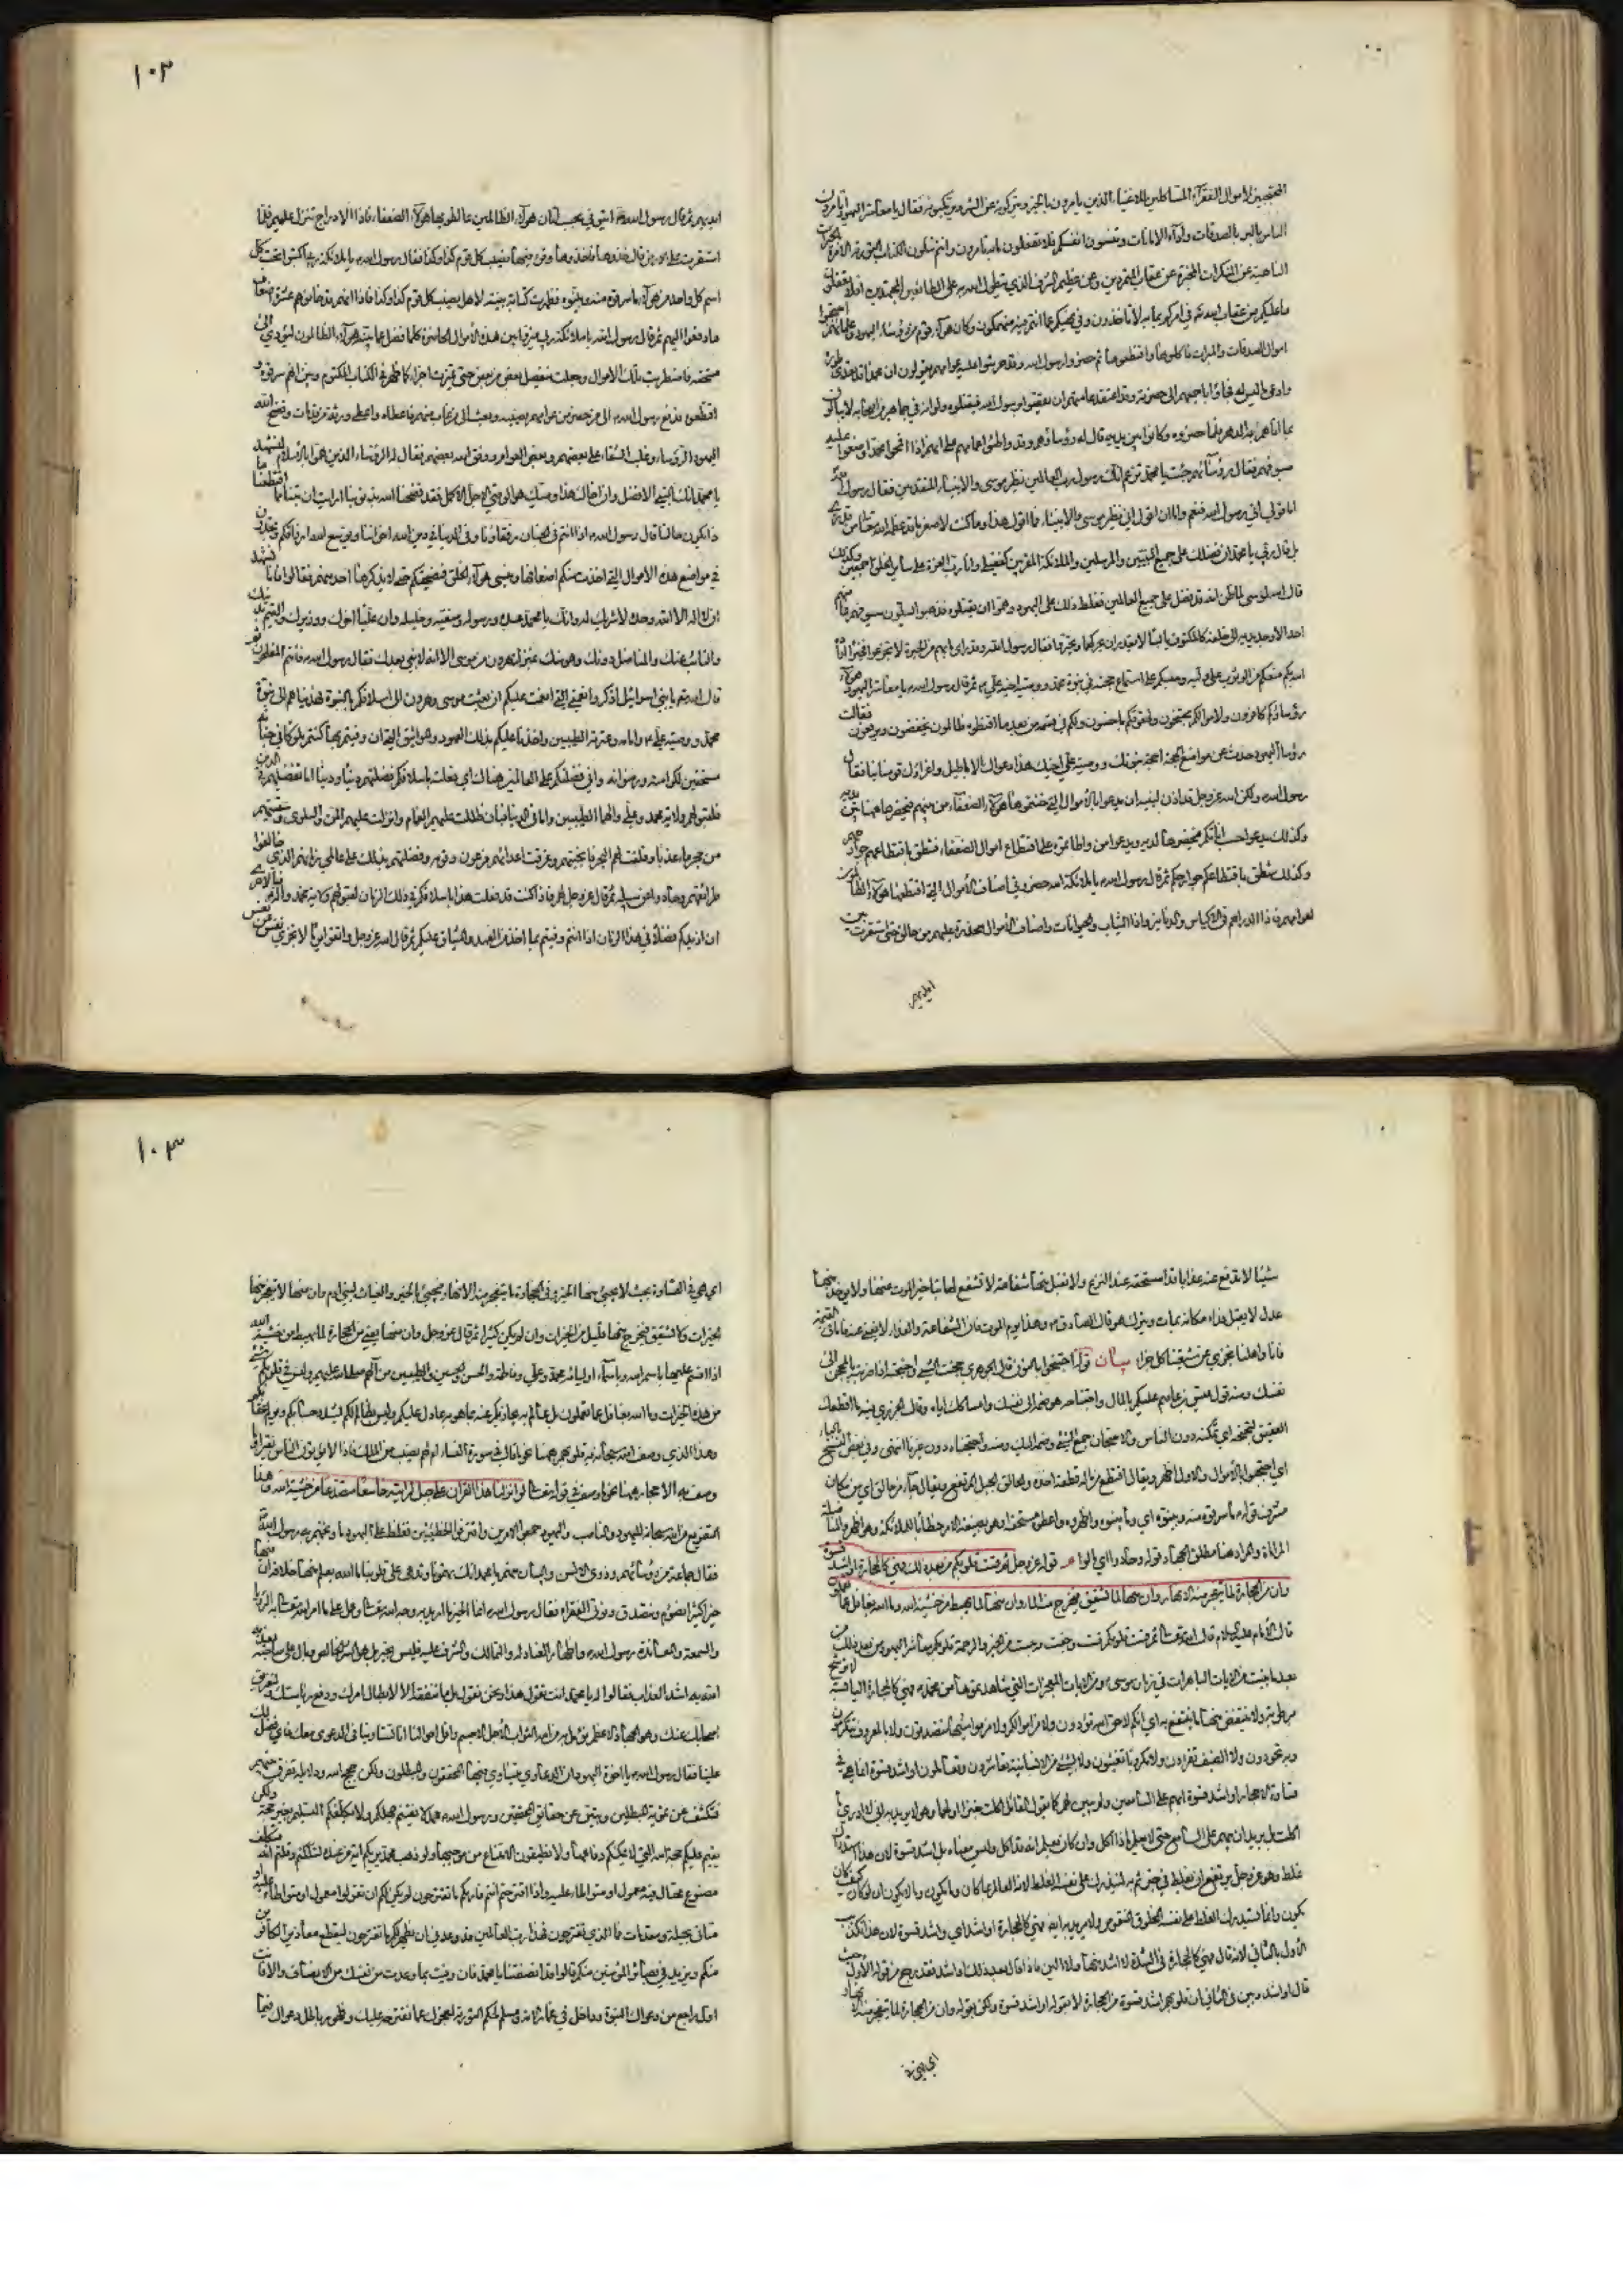 المحتجبين لاموال الفقرآء المستأكلين للاغنياء الذين يامرون بالخير ويتركونه وينهون عن الشر ويرتكبونه فقال يا معاشر اليهود اتامرون
الناس بالبر بالصدقات واداء الامانات وتنسون انفسكم فلا تفعلون ما به تامرون وانتم تتلون الكتاب التورية الامرة بالخيرات
الناهية عن المنكرات المخبرة عن عقاب المتمردين وعن عظيم الشرف الذي يتطول الله به على الطائعين المجتهدين افلا تعقلون
ما عليكم من عقاب الله تعالى في امركم بما به لا تاخذون وفي نهيكم عما انتم فيه منهمكون وكان هؤلاء قوم من رؤساء اليهود وعلمائهم احتجنوا
اموال الصدقات والمبرات فاكلوها واقتطعوها ثم حضروا رسول الله وقد حرشوا عليه عوامهم يقولون ان محمدا تعدى طوره
وادعى ما ليس له فجاؤا باجمعهم الى حضرته وقد اعتقد عامتهم ان يقعوا برسول الله فيقتلوه ولو انه في جماهير من اصحابه لا يبالون
بما اتاهم به الدهر فلما حضروه وكانوا بين يديه قال لهم رؤساؤهم وقد واطئوا عوامهم على انهم اذا افحموا محمدا وضعوا عليه
سيوفهم فقال رؤسائهم جئت يا محمد تزعم انك رسول رب العالمين نظير موسى والانبياء المتقدمين فقال رسول الله
اما قولي اني رسول الله فنعم واما ان اقول اني نظير موسى والانبياء فما اقول هذا وما كنت لاصغر ما قد عظمه الله تعالى من قدري
بل قال ربي يا محمد ان فضلك على جميع النبيين والمرسلين والملائكة المقربين كفضلي وانا رب العزة على سائر الخلق اجمعين وكذلك
قال الله لموسى لما ظن انه قد فضل على جميع العالمين فغلظ ذلك على اليهود وهموا ان يقتلوه فذهبوا يسلون سيوفهم فما منهم
احد الا وجد يديه الى خلفه كالمكتوف يابسا لا يقدر ان يحركها وتحيروا فقال رسول الله وقد راى ما بهم من الحيرة لا تجزعوا فخيرا اراد
الله بكم منعكم من الوثوب على وليه وحبسكم على استماع حجته في نبوة محمد ووصية اخيه علي ثم قال رسول الله يا معاشر اليهود هؤلاء
رؤساؤكم كافرون ولاموالكم محتجنون ولحقوقكم باخسون ولكم في قسمة من بعد ما اقتطعوه ظالمون يخفضون ويرفعون فقالت
رؤساء اليهود حدث عن مواضع الحجة احجة نبوتك ووصية علي اخيك هذا دعواك الاباطيل واغراؤك قومنا بنا فقال
رسول الله ولكن الله عز وجل قد اذن لنبيه ان يدعو بالاموال التي خنتموها هؤلاء الضعفاء ومن يليهم فيحضرها ههنا بين يديه
وكذلك يدعو حسباناتكم فيحضرها لديه ويدعو من واطاتموه على اقتطاع اموال الضعفاء فتنطق باقتطاعهم جوارحهم
وكذلك تنطق باقتطاعكم جوارحكم ثم قال رسول الله يا ملائكة الله احضروني اصناف الاموال التي اقتطعها هؤلاء الظالمون
لعوامهم فاذا الدراهم في الاكياس والدنانير واذا الثياب والحيوانات واصناف الاموال منحدرة عليهم من حالق حتى استقرت بين
ايديهم
ايديهم ثم قال رسول الله ائتوني بحسبانات هؤلاء الظالمين غالطوا بها هؤلاء الضعفاء فاذا الادراج تنزل عليهم فلما
استقرت على الارض قال خذوها فاخذوها وقرؤا فيها نصيب كل قوم كذا وكذا فقال رسول الله يا ملائكة ربي اكتبوا تحت كل
اسم كل واحد من هؤلاء ما سرقوه منه وبينوه فظهرت كتابة بينة لا بل نصيب كل قوم كذا وكذا فاذا انهم قد خانوهم عشرة امثال
ما دفعوا اليهم ثم قال رسول الله يا ملائكة ربي ميزوا من هذه الاموال الحاضرة كلما فضل عما بينه هؤلاء الظالمون لتؤدى الى
مستحقه فاضطربت تلك الاموال وجعلت تنفصل بعض من بعض حتى تميزت اجزاء كما ظهر في الكتاب المكتوب وبين انهم سرقوه و
اقتطعوه فدفع رسول الله الى من حضر من عوامهم نصيبه وبعث الى من غاب منهم فاعطاه واعطى ورثة من قد مات وفضح الله
اليهود الرؤساء وغلب الشقاء على بعضهم وبعض العوام ووفق الله بعضهم فقال له الرؤساء الذين هموا بالاسلام نشهد
يا محمد انك النبي الافضل وان اخاك هذا وصيك هو الوصي الاجل الاكمل فقد فضحنا الله بذنوبنا ارايت ان تبنا مما اقتطعنا
ماذا يكون حالنا قال رسول الله اذا انتم في الجنان رفقاؤنا وفي الدنيا في دين الله اخواننا ويوسع الله ارزاقكم وتجدون
في مواضع هذه الاموال التي اخذت منكم اضعافها وينسى هؤلاء الخلق فضيحتكم حتى لا يذكرها احد منهم فقالوا فانا نشهد
ان لا اله الا الله وحده لا شريك له وانك يا محمد عبده ورسوله وصفيه وخليله وان عليا اخوك ووزيرك والقيم بدينك
والنائب عنك والمناضل دونك وهو منك بمنزلة هرون من موسى الا انه لا نبي بعدك فقال رسول الله فانتم المفلحون ثم
قال الله تعالى يا بني اسرائيل اذكروا نعمتي التي انعمت عليكم ان بعثت موسى وهرون الى اسلافكم بالنبوة فهدياهم الى نبوة
محمد ووصية علي وامامة عترته الطيبين واخذنا عليكم بذلك العهود والمواثيق التي ان وفيتم بها كنتم ملوكا في جناته
مستحقين لكراماته ورضوانه واني فضلتكم على العالمين هناك اي فعلت باسلافكم فضلتهم دينا ودنيا اما تفضيلهم في الدين
فلقبولهم ولاية محمد وعلي والهما الطيبين واما في الدنيا فبان ظللت عليهم الغمام وانزلت عليهم المن والسلوى وسقيتهم
من حجر ماء عذبا وفلقت لهم البحر فانجيتهم وغرقت اعدائهم فرعون وقومه وفضلتهم بذلك على عالمي زمانهم الذين خالفوا
طرائقهم وحادوا عن سبيلهم ثم قال عز وجل لهم فاذا كنت قد فعلت هذا باسلافكم في ذلك الزمان لقبولهم ولاية محمد وآله فبالاحرى
ان ازيدكم فضلا في هذا الزمان اذا انتم وفيتم بما اخذ من العهد والميثاق عليكم ثم قال الله عز وجل واتقوا يوما لا تجزي نفس عن نفس
شيئا لا تدفع عنه عذابا قد استحقه عند النزع ولا تقبل منها شفاعة لا تشفع لها بتاخير الموت عنها ولا يؤخذ منها
عدل لا يقبل فداء مكانه يمات ويترك هو قال الصادق وهذا يوم الموت فان الشفاعة والفداء لا يغني عنه فاما في القيمة
فانا واهلنا نجزي عن شيعتنا كل جزاء بيان قوله احتجنوا بالنون قال الجوهري حجنت الشيء واحتجنته اذا جذبته بالمحجن الى
نفسك ومنه قول قيس بن عاصم عليكم بالمال واحتجانه وهو ضمه الى نفسك وامساكك اياه وقال الجزري فيه ما اقطعك
العقيق لتحتجنه اي تتملكه دون الناس والاحتجان جمع الشيء وضمه اليك ومنه واحتجناه دون غيرنا انتهى وفي بعض النسخ بالباء
اي احتجبوا بالاموال والاول اظهر ويقال اقتطع من ماله قطعة اخذه والحالق الجبل المرتفع ويقال جاء من حالق اي من مكان
مشرف قوله ما سرقوه منه وبينوه اي وما بينوه واظهروه واعطوه مستحقه او هو بصيغة الامر خطابا للملائكة وهو اظهر والمناضلة
المراماة والمراد هنا مطلق الجهاد قوله وحادوا اي مالوا م قوله عز وجل ثم قست قلوبكم من بعد ذلك فهي كالحجارة او اشد قسوة
وان من الحجارة لما يتفجر منه الانهار وان منها لما يشقق فيخرج منه الماء وان منها لما يهبط من خشية الله وما الله بغافل عما تعملون
قال الامام عليه السلام قال الله تعالى ثم قست قلوبكم قست وجفت ويبست من الخير والرحمة قلوبكم معاشر اليهود من بعد ذلك من
بعد ما تبينت من الايات الباهرات في زمان موسى ومن الايات المعجزات التي شاهدتموها من محمد فهي كالحجارة اليابسة لا ترشح
برطوبة ولا ينتفض منها ما ينتفع به اي انكم لا حق الله تؤدون ولا من اموالكم ولا من مواشيها تتصدقون ولا بالمعروف تتكرمون
وتجودون ولا الضيف تقرؤون ولا مكروبا تغيثون ولا بشيء من الانسانية تعاشرون وتعاملون او اشد قسوة انما هي في
قساوة الاحجار او اشد قسوة ابهم على السامعين ولم يبين لهم كما يقول القائل اكلت خبزا او لحما وهو لا يريد به اني لا ادري ما
اكلت بل يريد ان يبهم على السامع حتى لا يعلم ماذا اكل وان كان يعلم انه قد اكل وليس معناه بل اشد قسوة لان هذا استدراك
غلط وهو عز وجل يرتفع ان يغلط في خبر ثم يستدرك على نفسه الغلط لانه العالم بما كان وما يكون وبما لا يكون ان لو كان كيف كان
يكون وانما يستدرك الغلط على نفسه المخلوق المنقوص ولا يريد به ايضا فهي كالحجارة او اشد اي واشد قسوة لان هذا تكذيب
الاول بالثاني لانه قال فهي كالحجارة في الشدة لا اشد منها ولا الين فاذا قال بعد ذلك او اشد فقد رجع عن قوله الاول حيث
قال او اشد وبين في الثاني ان قلوبهم اشد قسوة من الحجارة لا بقوله او اشد قسوة ولكن بقوله وان من الحجارة لما يتفجر منه الانهار
اي فهي في
اي هي في القساوة بحيث لا يجيئ منها الخير وفي الحجارة ما يتفجر منه الانهار فيجيئ بالخير والغياث لبني ادم وان منها لا يتفجر منها
الخيرات وما تشقق فيخرج منها قليل من الخيرات وان لم يكن كثيرا ثم قال عز وجل وان منها يعني من الحجارة لما يهبط من خشية الله
اذا اقسم عليها باسم الله وباسماء اوليائه محمد وعلي وفاطمة والحسن والحسين والطيبين من آلهم صلى الله عليهم وليس في قلوبكم شيء
من هذه الخيرات وما الله بغافل عما تعملون بل عالم به يجازيكم عنه بما هو به عادل عليكم وليس بظالم لكم يشدد حسابكم ويولم عقابكم
وهذا الذي وصف الله سبحانه به قلوبهم ههنا نحو ما قال في سورة النساء ام لهم نصيب من الملك فاذا لا يؤتون الناس نقيرا وما
وصف به الاحجار ههنا نحو ما وصف في قوله تعالى لو انزلنا هذا القران على جبل لرايته خاشعا متصدعا من خشية الله وهذا
التقريع من الله سبحانه لليهود والناصب واليهود جمعوا الامرين واقترفوا الخطيئتين فغلظ على اليهود ما وبخهم به رسول الله
فقال جماعة من رؤسائهم وذوي الالسن والبيان منهم يا محمد انك تهجونا وتدعي على قلوبنا ما الله يعلم منها خلافه ان فيها
خيرا كثيرا نصوم ونتصدق ونواسي الفقراء فقال رسول الله انما الخير ما اريد به وجه الله تعالى وعمل على ما امر الله تعالى به فاما ما اريد به الرياء
والسمعة والمعاندة رسول الله واظهار العناد له والتمالك والشرف عليه فليس بخير بل هو الشر الخالص وبال على صاحبه يعذبه
الله به اشد العذاب فقالوا له يا محمد انت تقول هذا ونحن نقول بل ما ننفقه الا لابطال امرك ودفع رياستك ولتفريق
اصحابك عنك وهو الجهاد الاعظم نؤمل به من الله الثواب الاجل الاجسم واقل احوالنا انا تساوينا في الدعوى معك فاي فضل لك
علينا فقال رسول الله يا اخوة اليهود ان الدعاوي يتساوى فيها المحقون والمبطلون ولكن حجج الله ودلايله تفرق بينهم
فتكشف عن تمويه المبطلين وتبين عن حقائق المحقين ورسول الله محمد لا يغتنم جهلكم ولا يكلفكم التسليم له بغير حجة ولكن
يقيم عليكم حجة الله التي لا يمكنكم دفاعها ولا تطيقون الامتناع من موجبها ولو ذهب محمد يريكم اية من عنده لشككتم وقلتم انه متكلف
مصنوع محتال فيه معمول او متواطا عليه واذا اقترحتم انتم فاراكم ما تقترحون لم يكن لكم ان تقولوا معمول او متواطا عليه او
متاتى بحيلة ومقدمات فما الذي تقترحون فهذا رب العالمين قد وعدني ان يظهر لكم ما تقترحون ليقطع معاذير الكافرين
منكم ويزيد في بصائر المؤمنين منكم قالوا قد انصفتنا يا محمد فان وفيت بما وعدت من نفسك من الانصاف والا فانت
اول راجع من دعواك النبوة وداخل في غمار الامة ومسلم لحكم التورية لعجزك عما نقترحه عليك وظهور باطل دعواك فيما
١٠٢
١٠٣